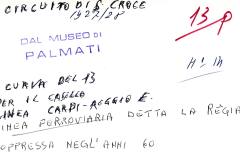 CIRCUITO DI S. CROCE
1927/28
13 p
DAL MUSEO DI
PALMATI
H: 14
CURVA DEL 13
PER IL CASELLO
LINEA CARPI-REGGIO E.
LINEA FERROVIARIA DETTA LA REGIA
OPPRESSA NEGL'ANNI 60